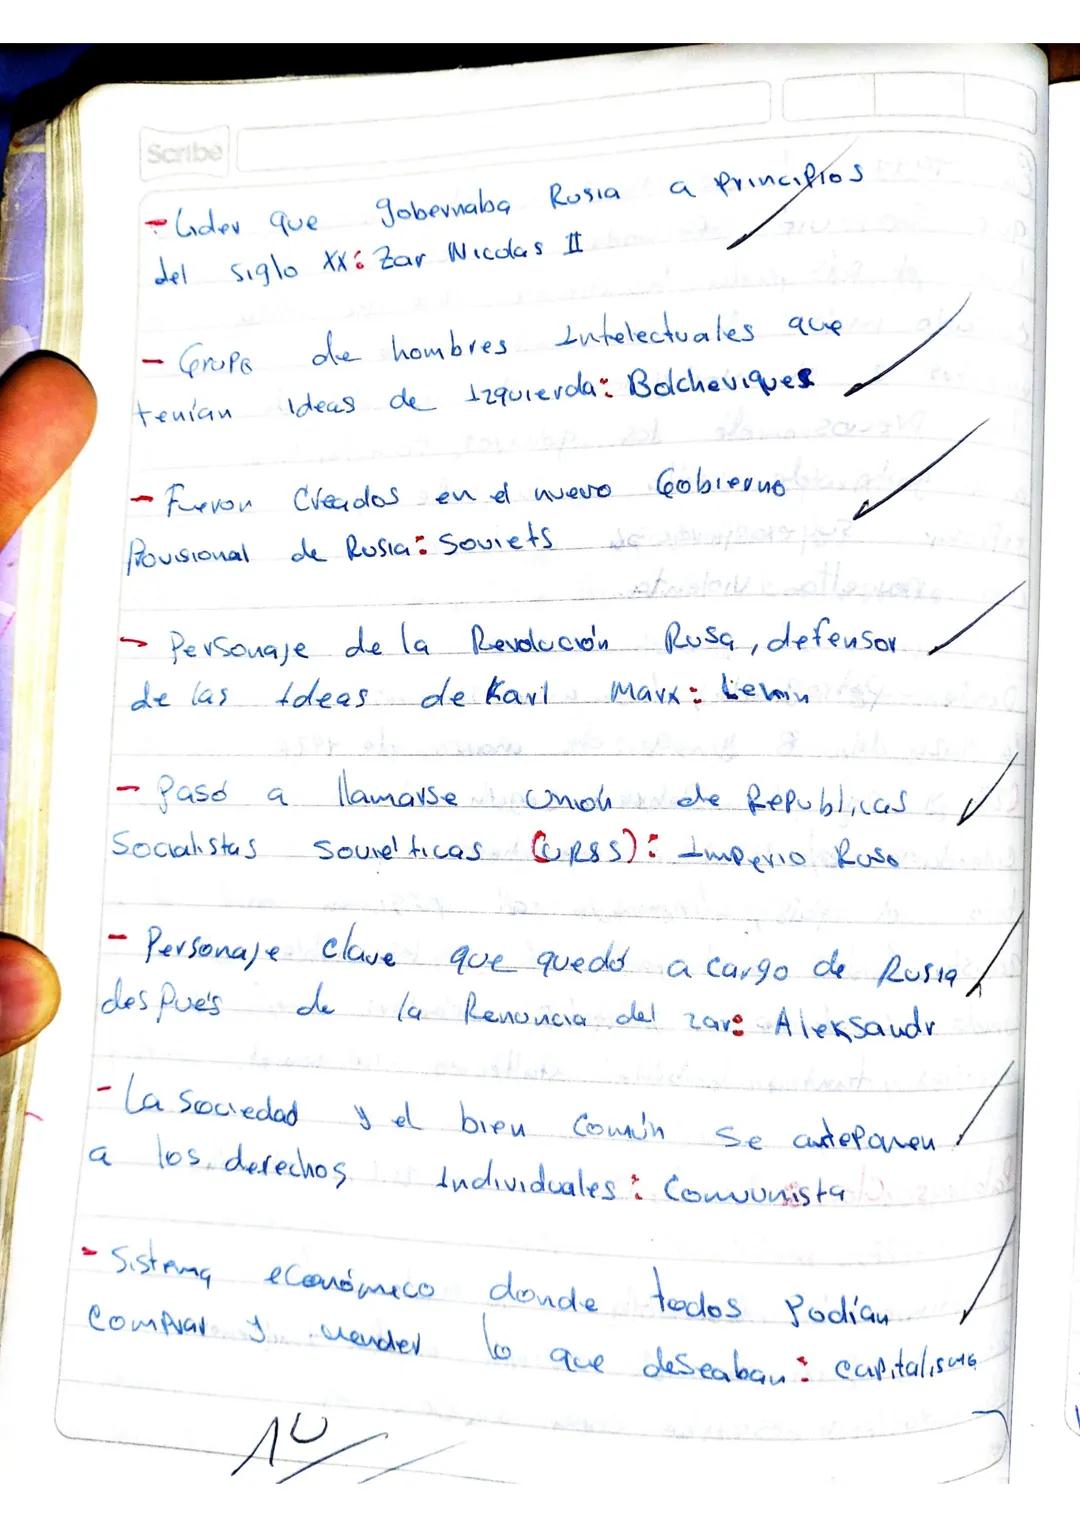 Scribe
- Lider que gobernaba Rusia a principios
del siglo XX: Zar Nicolas II
- Grupo de hombres Intelectuales que
tenían Ideas de Izquierda: Bolcheviques
- Fueron Creados en el nuevo Gobierno
Provisional de Rusia: Soviets
- Personaje de la Revolución Rusa, defensor
de las Ideas de Karl Marx: Lenin
- Pasó a llamarse Unión de Republicas
Socialistas Soviéticas (URSS): Imperio Ruso
- Personaje clave que quedó a cargo de Rusia
después de la Renuncia del zar: Aleksandr
- La Sociedad y el bien Común Se anteponen
a los derechos Individuales: Comunista
- Sistema económico donde todos Podían
Comprar y vender lo que deseaban: capitalismo
10